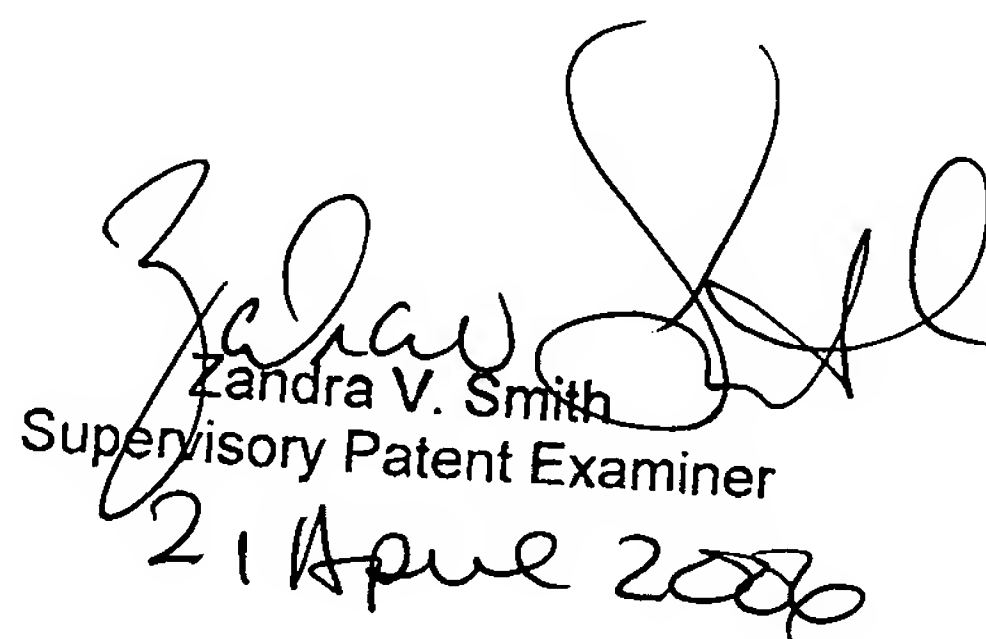 Zandra V. Smith
Supervisory Patent Examiner
21 April 2006